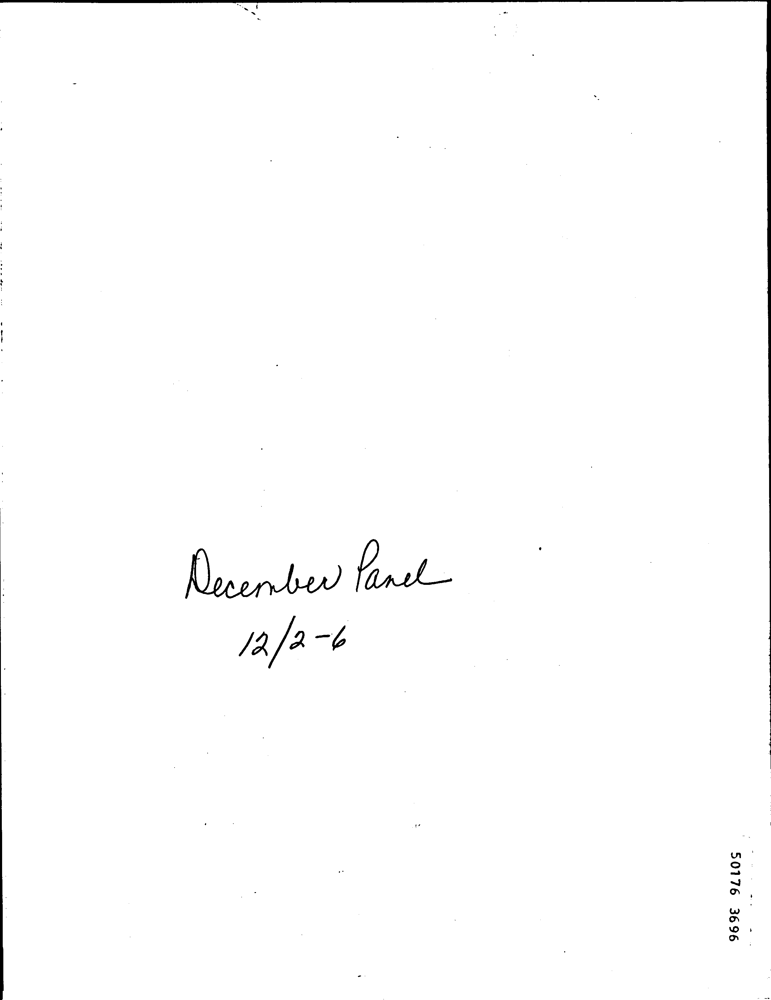 December Panel
12/2-6
50176 3696